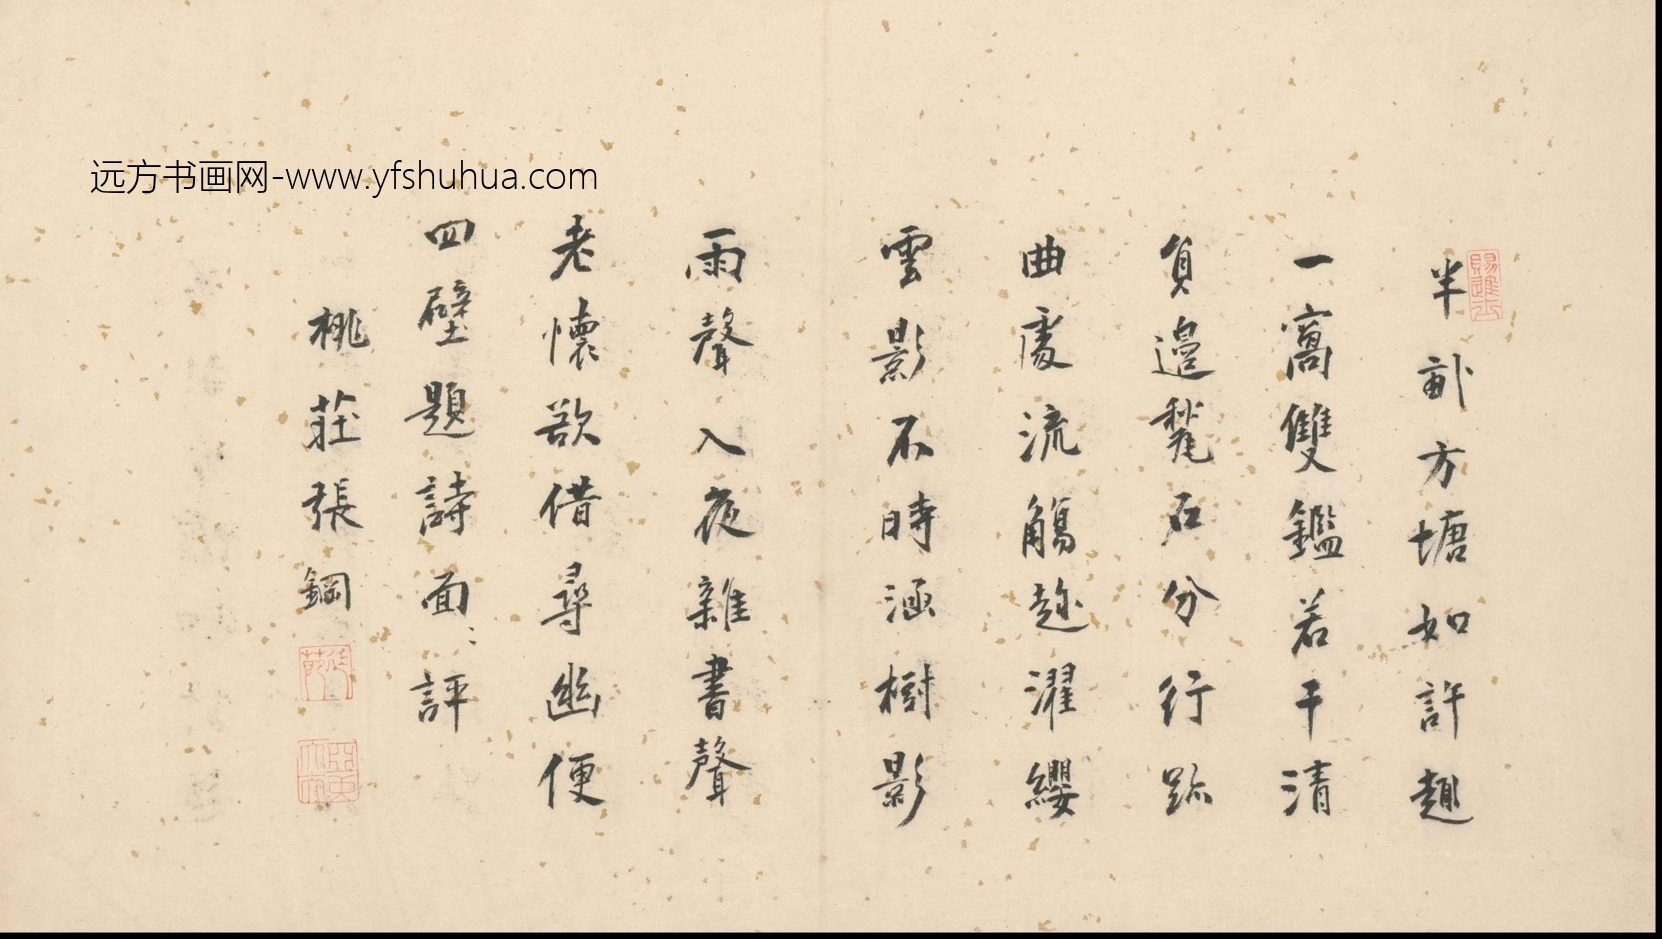 远方书画网-www.yfshuhua.com
半畝方塘如許趣
一窩雙鑑若干清
負邉甃石分行跡
曲處流觴趂濯纓
雲影不時涵樹影
雨聲入夜雜書聲
老懷欲借尋幽便
四壁題詩面〻評
桃莊張鋼
賜進士